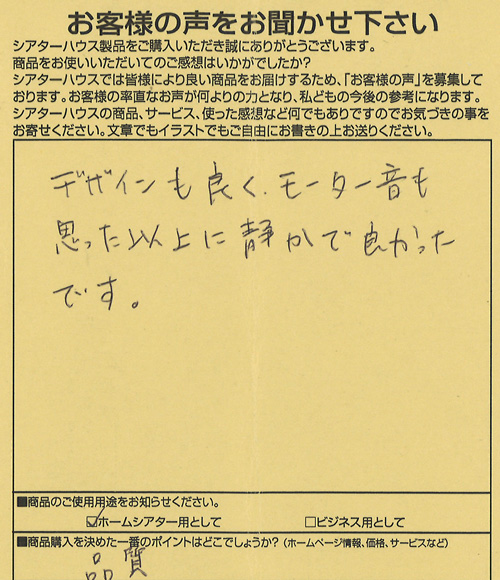 お客様の声をお聞かせ下さい
シアターハウス製品をご購入いただき誠にありがとうございます。
商品をお使いいただいてのご感想はいかがでしたか?
シアターハウスでは皆様により良い商品をお届けするため、「お客様の声」を募集して
おります。お客様の率直なお声が何よりの力となり、私どもの今後の参考になります。
シアターハウスの商品、サービス、使った感想など何でもありですのでお気づきの事を
お寄せください。文章でもイラストでもご自由にお書きの上お送りください。
デザインも良く、モーター音も
思った以上に静かで良かった
です。
■商品のご使用用途をお知らせください。
☑ホームシアター用として □ビジネス用として
■商品購入を決めた一番のポイントはどこでしょうか?(ホームページ情報、価格、サービスなど)
品質